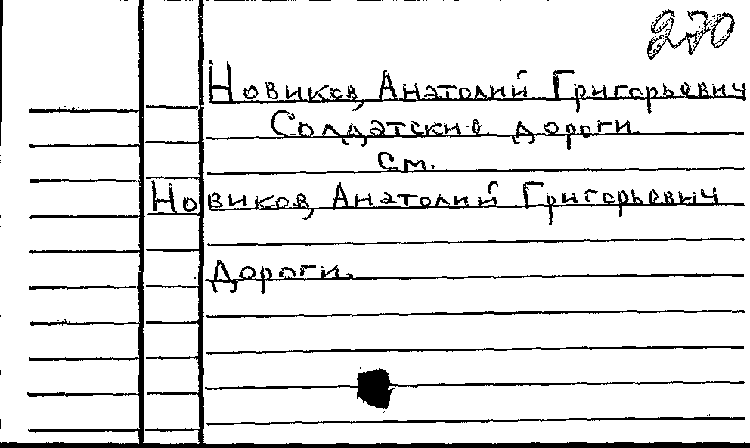 270
Новиков, Анатолий Григорьевич
Солдатские дороги
см.
Новиков, Анатолий Григорьевич
Дороги.